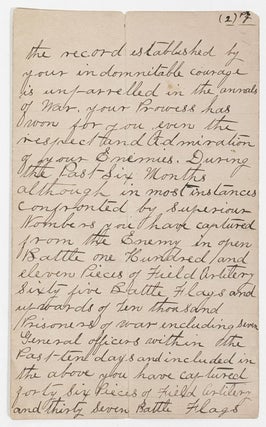 (2)
the record established by
your indomnitable courage
is unparrelled in the annals
of War. your Prowess has
won for you even the
respect and Admiration
of your Enemies. During
the Past Six Months
although in most instances
confronted by Superiour
Nombers you have captured
from the Enemy in open
Battle one Hundred and
eleven Pieces of Field Artilery
Sixty five Battle Flags and
upwards of ten thousand
Prisoners of war including seven
General officers within the
Past ten days and included in
the above you have captured
forty Six Pieces of Field Artilery
and thirty Seven Battle Flags